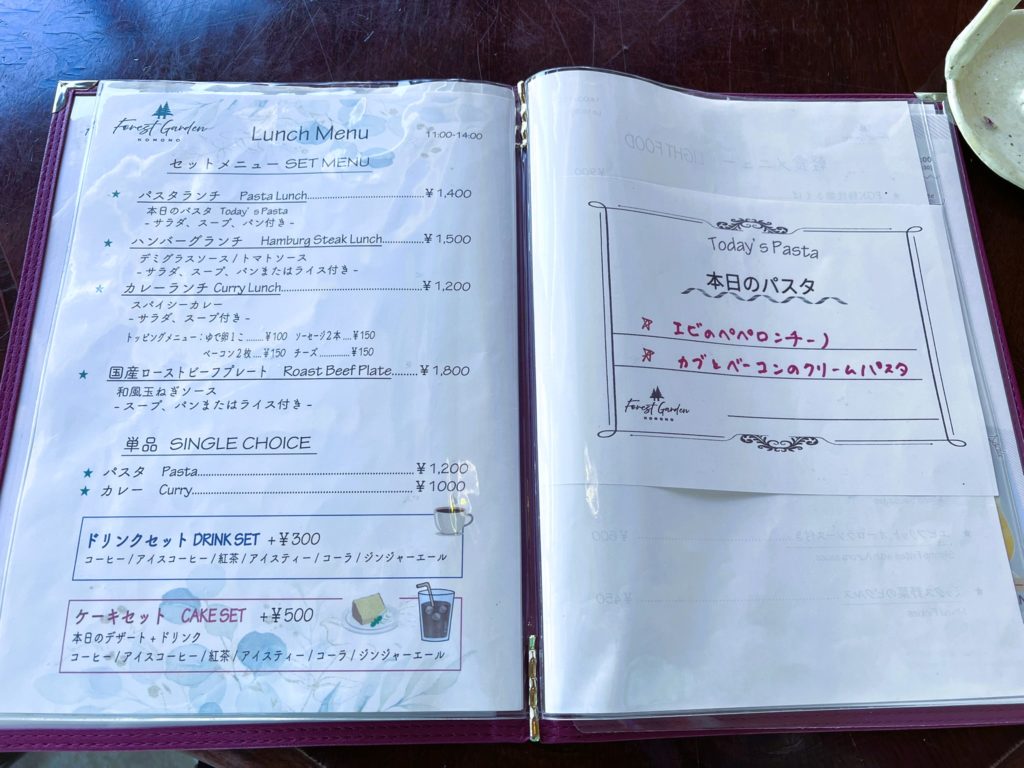 Forest Garden
KOMONO
Lunch Menu
11:00-14:00
セットメニュー SET MENU
★ パスタランチ Pasta Lunch..........¥1,400
本日のパスタ Today's Pasta
- サラダ、スープ、パン付き -
★ ハンバーグランチ Hamburg Steak Lunch..........¥1,500
デミグラスソース/トマトソース
- サラダ、スープ、パンまたはライス付き -
★ カレーランチ Curry Lunch..........¥1,200
スパイシーカレー
- サラダ、スープ付き -
トッピングメニュー:ゆで卵1こ .......¥100 ソーセージ2本....¥150
ベーコン2枚....¥150 チーズ............¥150
★ 国産ローストビーフプレート Roast Beef Plate..........¥1,800
和風玉ねぎソース
- スープ、パンまたはライス付き -
単品 SINGLE CHOICE
★ パスタ Pasta..........¥1,200
★ カレー Curry..........¥1000
ドリンクセット DRINK SET +¥300
コーヒー/アイスコーヒー/紅茶/アイスティー/コーラ/ジンジャーエール
ケーキセット CAKE SET +¥500
本日のデザート+ドリンク
コーヒー/アイスコーヒー/紅茶/アイスティー/コーラ/ジンジャーエール
Today's Pasta
本日のパスタ
☆ エビのペペロンチーノ
☆ カブとベーコンのクリームパスタ
Forest Garden
KOMONO